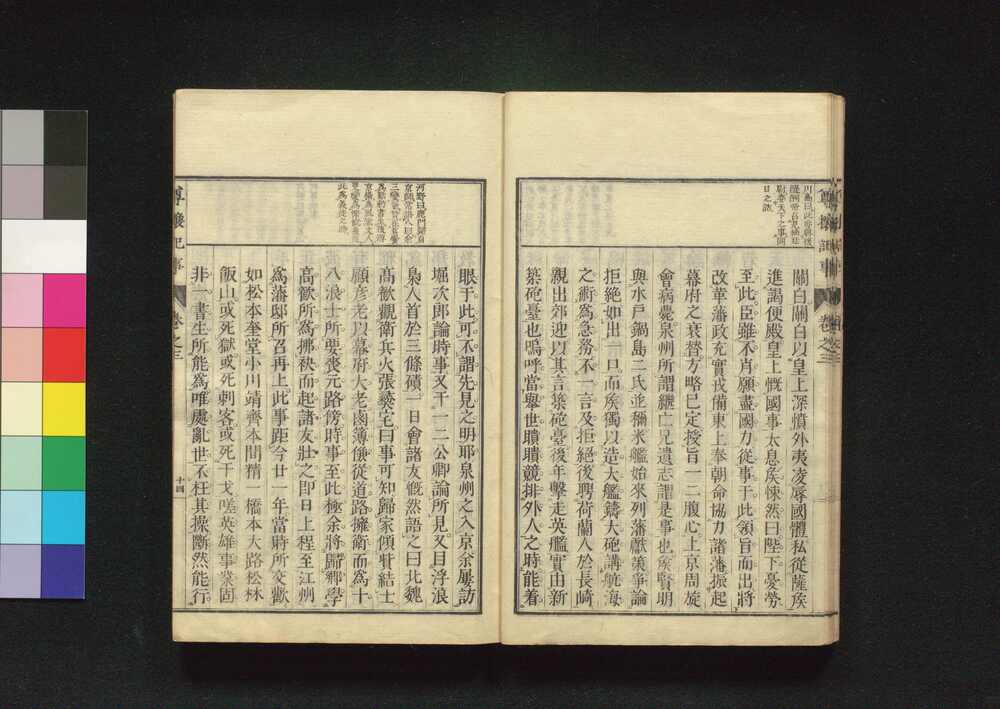 川島曰此
日之論
關白關白以皇上深憤外夷凌辱國體私從薩矦
進謁便殿皇上慨國事太息矦悚然曰陛下憂勞
至此臣雖不肖願盡國力從事于此領旨而出將
改革藩政充實戎備東上奉朝命協力諸藩振起
幕府之衰替方略已定授旨一二腹心上京周旋
會病薨泉州所謂繼亡兄遺志謂是事也矦賢明
與水戸鍋島二氏迯彌米艦始來列藩獻策爭論
拒絕如出一口而矦獨以造大艦鑄大砲講航海
之術爲急務不一言及拒絕後聘荷蘭人於長崎
親出郊迎以其言築砲臺後年擊走英艦實由新
築砲臺也嗚呼當擧世聵聵競排外人之時能着
尊攘紀事
卷之三
河野曰鹿門
眼于此可不謂先見之明耶泉州之入京余屢訪
堀次郎論時事又干一二公卿論所見又目浮浪
梟人首於三條磧一日會諸友慨然語之曰此魏
高歡觀衛兵火張彝宅曰事可知歸家傾貲結士
願彥老以幕府大老鹵簿儀從道路擁衛而爲十
八浪士所要喪元路傍時事至此極余將歸鄕學
高歡所爲揶袂而起諸友壯之卽日上程至江州
爲藩邸所召再上此事距今廿一年當時所交歡
如松本奎堂小川靖齊本間精一橋本大路松林
飯山或死獄或死刺客或死干戈嗟英雄事業固
非一書生所能爲唯處亂世不枉其操斷然能行
尊攘紀事
卷之三
十四